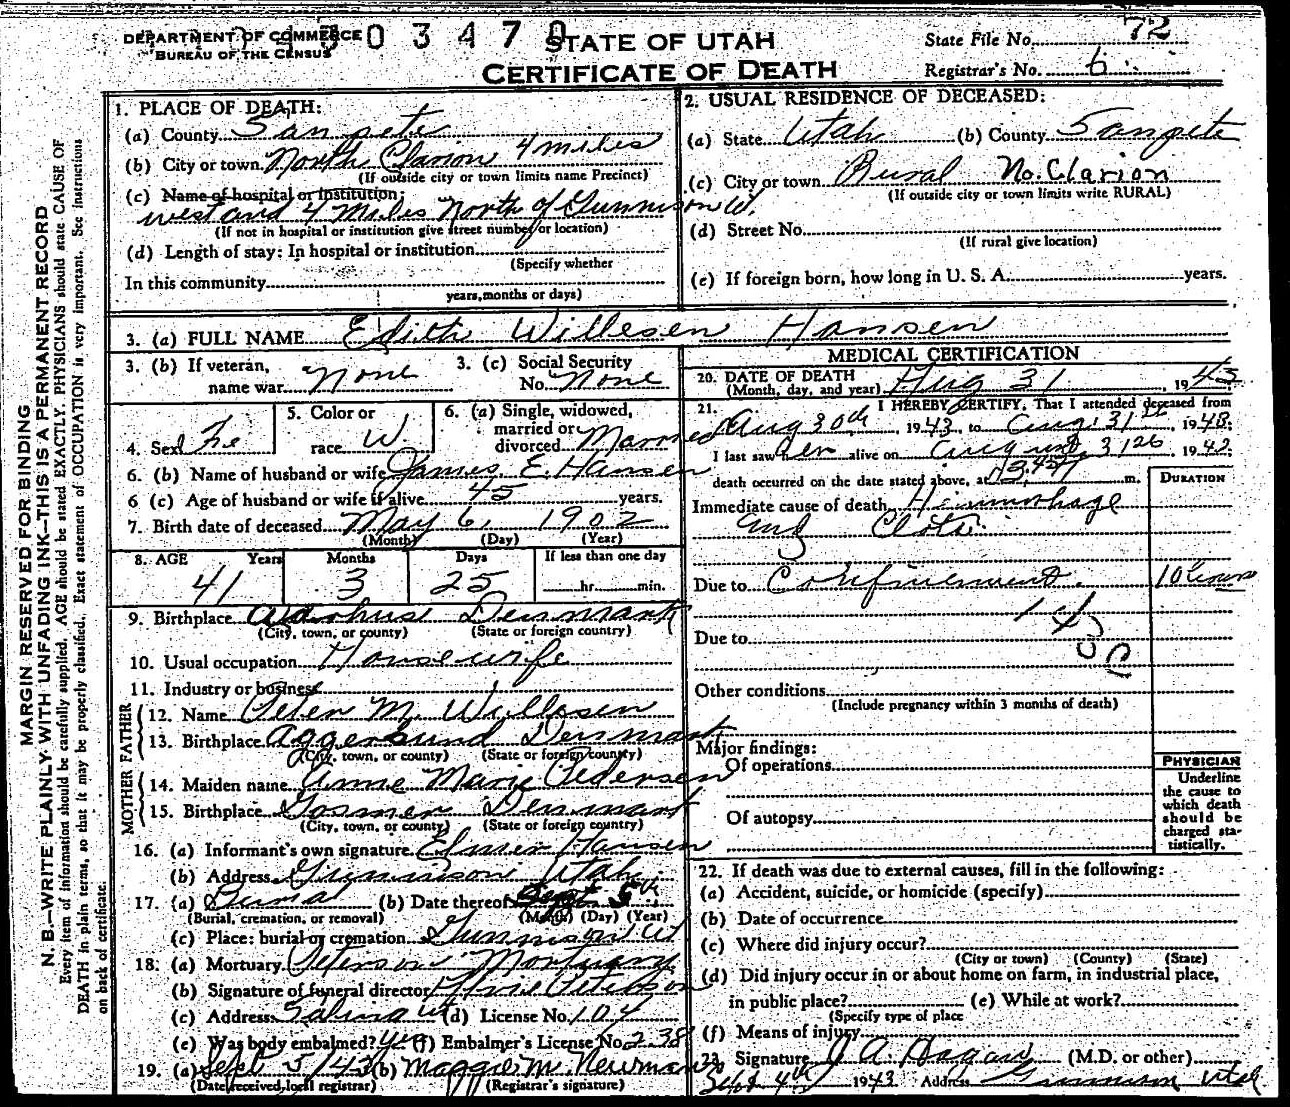 DEPARTMENT OF COMMERCE
BUREAU OF THE CENSUS
0 3 4 7 0
STATE OF UTAH
CERTIFICATE OF DEATH
State File No. 72
Registrar's No. 6
MARGIN RESERVED FOR BINDING
N. B.—WRITE PLAINLY WITH UNFADING INK—THIS IS A PERMANENT RECORD
Every item of information should be carefully supplied. AGE should be stated EXACTLY. PHYSICIANS should state CAUSE OF
DEATH in plain terms, so that it may be properly classified. Exact statement of OCCUPATION is very important. See instructions
on back of certificate.
1. PLACE OF DEATH:
(a) County Sanpete
(b) City or town North Clarion 4 miles
(If outside city or town limits name Precinct)
(c) Name of hospital or institution:
west and 4 miles North of Gunnison U.
(If not in hospital or institution give street number or location)
(d) Length of stay: In hospital or institution
(Specify whether
In this community
years, months or days)
2. USUAL RESIDENCE OF DECEASED:
(a) State Utah (b) County Sanpete
(c) City or town Rural No. Clarion
(If outside city or town limits write RURAL)
(d) Street No.
(If rural give location)
(e) If foreign born, how long in U. S. A. years.
3. (a) FULL NAME Edith Willesen Hansen
3. (b) If veteran, name war None
3. (c) Social Security No. None
4. Sex Fe
5. Color or race W
6. (a) Single, widowed, married or divorced Married
6. (b) Name of husband or wife James E. Hansen
6 (c) Age of husband or wife if alive 45 years.
7. Birth date of deceased May 6, 1902
(Month) (Day) (Year)
8. AGE Years Months Days If less than one day
41 3 25 hr. min.
9. Birthplace Aarhus Denmark
(City, town, or county) (State or foreign country)
10. Usual occupation Housewife
11. Industry or business
FATHER
12. Name Peter M. Willesen
13. Birthplace Aggersund Denmark
(City, town, or county) (State or foreign country)
MOTHER
14. Maiden name Anne Marie Pedersen
15. Birthplace Gosmer Denmark
(City, town, or county) (State or foreign country)
16. (a) Informant's own signature Elmer Hansen
(b) Address Gunnison Utah
17. (a) Burial (b) Date thereof Sept 5th
(Burial, cremation, or removal) (Month) (Day) (Year)
(c) Place: burial or cremation Gunnison Ut
18. (a) Mortuary Peterson Mortuary
(b) Signature of funeral director Peterson
(c) Address Salina Ut (d) License No. 104
(e) Was body embalmed? Yes (f) Embalmer's License No. 238
19. (a) Sept 5/43 (b) Maggie M. Newman
(Date received, local registrar) (Registrar's signature)
MEDICAL CERTIFICATION
20. DATE OF DEATH
(Month, day, and year) Aug 31, 1943
21. I HEREBY CERTIFY, That I attended deceased from
Aug 30th, 1943, to Aug. 31st, 1943;
I last saw her alive on August 31st, 1942;
death occurred on the date stated above, at m.
DURATION
Immediate cause of death Hemorrhage
and Clots.
Due to Confinement. 10 hours
Due to
Other conditions
(Include pregnancy within 3 months of death)
Major findings:
Of operations
Of autopsy
PHYSICIAN
Underline
the cause to
which death
should be
charged sta-
tistically.
22. If death was due to external causes, fill in the following:
(a) Accident, suicide, or homicide (specify)
(b) Date of occurrence
(c) Where did injury occur?
(City or town) (County) (State)
(d) Did injury occur in or about home on farm, in industrial place,
in public place? (e) While at work?
(Specify type of place
(f) Means of injury
23. Signature (M.D. or other)
Sept 4th 1943 Address Gunnison Utah